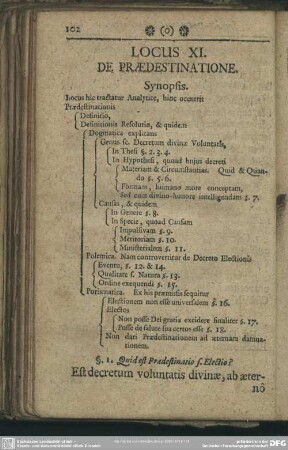 102
(o)
LOCUS XI.
DE PRÆDESTINATIONE.
Synopsis.
Locus hic tractatur Analyticè, hinc occurrit
Prædestinationis
Definitio,
Definitionis Resolutio, & quidem
Dogmatica explicans
Genus sc. Decretum divinæ Voluntatis,
In Thesi §. 2. 3. 4.
In Hypothesi, quoad hujus decreti
Materiam & Circumstantias. Quid & Quan-
do §. 5. 6.
Formam, humano more conceptam,
sed eum divino honore intelligendam §. 7.
Causas, & quidem
In Genere §. 8.
In Specie, quoad Causam
Impulsivam §. 9.
Meritoriam §. 10.
Ministerialem §. 11.
Polemica. Nam controvertitur de Decreto Electionis
Eventu, §. 12. & 14.
Qualitate s. Natura §. 13.
Ordine exequendi §. 15.
Porismatica. Ex his præmissis sequitur
Electionem non esse universalem §. 16.
Electos
Non posse Dei gratia excidere finaliter §. 17.
Posse de salute sua certos esse §. 18.
Non dari Prædestinationem ad æternam damna-
tionem.
§. 1. Quid est Prædestinatio s. Electio?
Est decretum voluntatis divinæ, ab æter-
nô
DFG